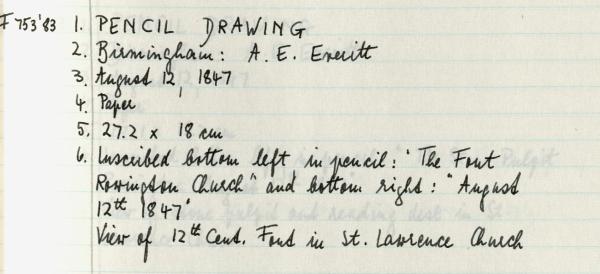 F 753'83 1. PENCIL DRAWING
2. Birmingham: A. E. Everitt
3. August 12, 1847
4. Paper
5. 27.2 x 18 cm
6. Inscribed bottom left in pencil: "The Font
Rowington Church" and bottom right: "August
12th 1847"
View of 12th Cent. Font in St. Lawrence Church